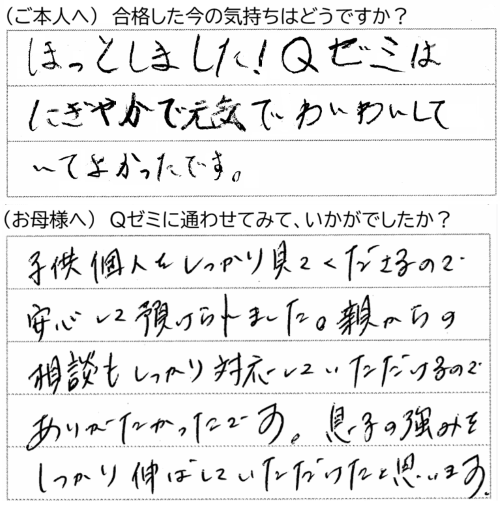 (ご本人へ) 合格した今の気持ちはどうですか?
ほっとしました!Qゼミは
にぎやかで元気でわいわいして
いてよかったです。
(お母様へ) Qゼミに通わせてみて、いかがでしたか?
子供個人をしっかり見てくださるので
安心して預けられました。親からの
相談もしっかり対応していただけるので
ありがたかったです。息子の強みを
しっかり伸ばしていただけたと思います。